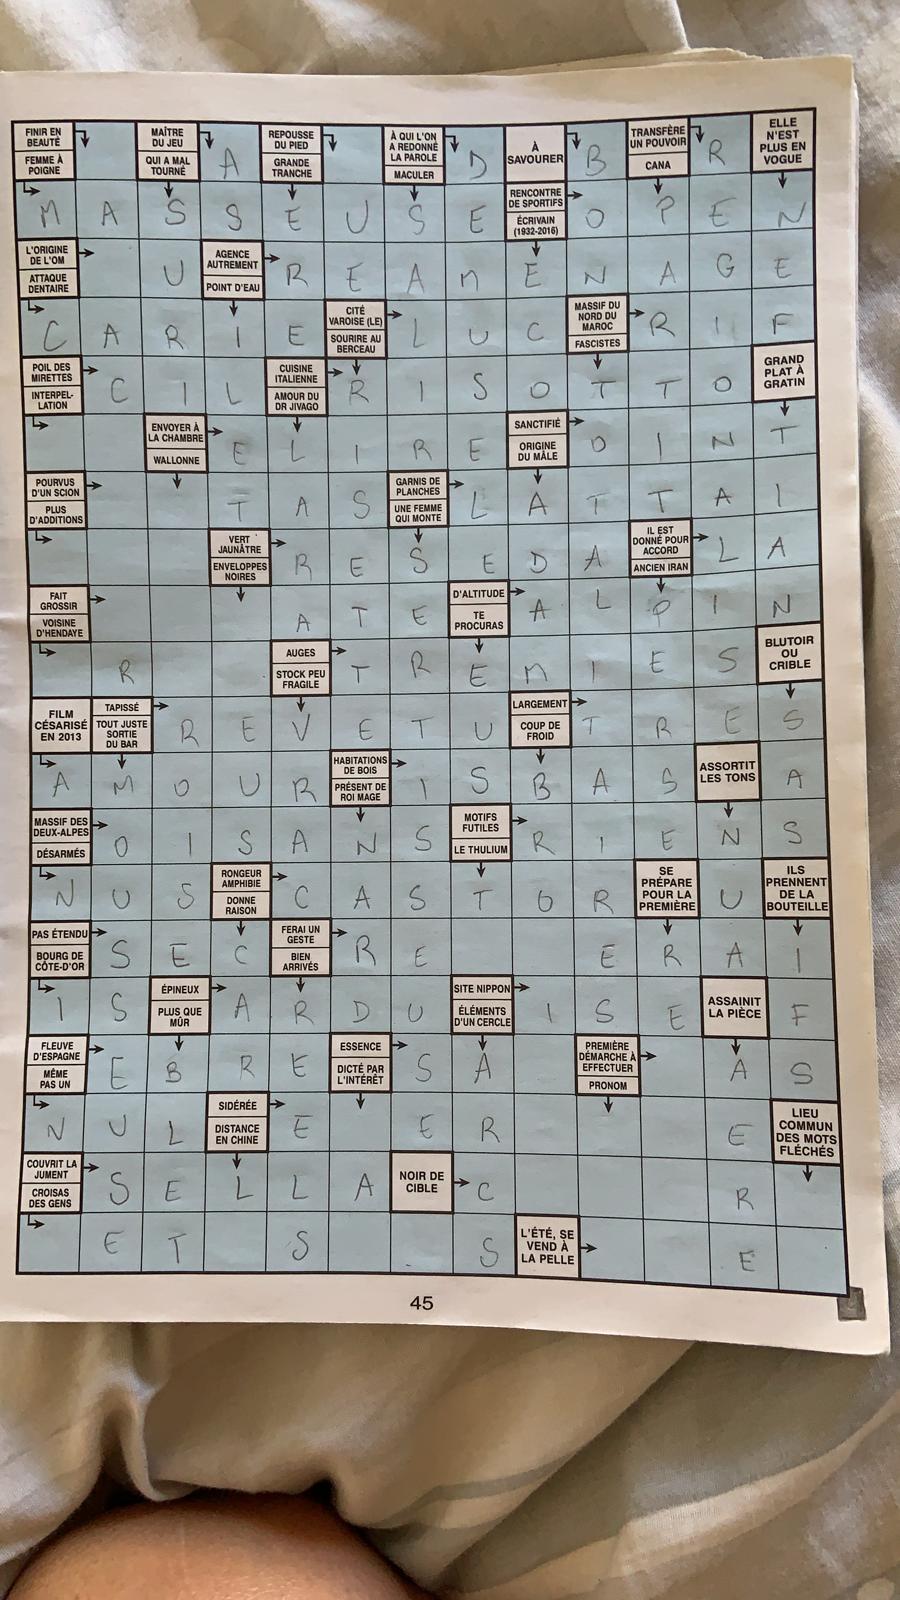 FINIR EN BEAUTÉ FEMME À POIGNE MAÎTRE DU JEU QUI A MAL TOURNÉ A REPOUSSE DU PIED GRANDE TRANCHE À QUI L'ON A REDONNÉ LA PAROLE MACULER D À SAVOURER B TRANSFÈRE UN POUVOIR CANA R ELLE N'EST PLUS EN VOGUE
M A S S E U S E RENCONTRE DE SPORTIFS ÉCRIVAIN (1932-2016) O P E N
L'ORIGINE DE L'OM ATTAQUE DENTAIRE U AGENCE AUTREMENT POINT D'EAU R E A N E N A G E
C A R I E CITÉ VAROISE (LE) SOURIRE AU BERCEAU L U C MASSIF DU NORD DU MAROC FASCISTES R I F
POIL DES MIRETTES INTERPEL-LATION C I L CUISINE ITALIENNE AMOUR DU DR JIVAGO R I S O T T O GRAND PLAT À GRATIN
ENVOYER À LA CHAMBRE WALLONNE E L I R E SANCTIFIÉ ORIGINE DU MÂLE O I N T
POURVUS D'UN SCION PLUS D'ADDITIONS T A S GARNIS DE PLANCHES UNE FEMME QUI MONTE L A T T A I
VERT JAUNÂTRE ENVELOPPES NOIRES R E S E D A IL EST DONNÉ POUR ACCORD ANCIEN IRAN L A
FAIT GROSSIR VOISINE D'HENDAYE A T E D'ALTITUDE TE PROCURAS A L P I N
R AUGES STOCK PEU FRAGILE T R E M I E S BLUTOIR OU CRIBLE
FILM CÉSARISÉ EN 2013 TAPISSÉ TOUT JUSTE SORTIE DU BAR R E V E T U LARGEMENT COUP DE FROID T R E S
A M O U R HABITATIONS DE BOIS PRÉSENT DE ROI MAGE I S B A S ASSORTIT LES TONS A
MASSIF DES DEUX-ALPES DÉSARMÉS O I S A N S MOTIFS FUTILES LE THULIUM R I E N S
N U S RONGEUR AMPHIBIE DONNE RAISON C A S T O R SE PRÉPARE POUR LA PREMIÈRE U ILS PRENNENT DE LA BOUTEILLE
PAS ÉTENDU BOURG DE CÔTE-D'OR S E C FERAI UN GESTE BIEN ARRIVÉS R E E R A I
I S ÉPINEUX PLUS QUE MÛR A R D U SITE NIPPON ÉLÉMENTS D'UN CERCLE I S E ASSAINIT LA PIÈCE F
FLEUVE D'ESPAGNE MÊME PAS UN E B R E ESSENCE DICTÉ PAR L'INTÉRÊT S A PREMIÈRE DÉMARCHE À EFFECTUER PRONOM A S
N U L SIDÉRÉE DISTANCE EN CHINE E E R E LIEU COMMUN DES MOTS FLÉCHÉS
COUVRIT LA JUMENT CROISAS DES GENS S E L L A NOIR DE CIBLE C R
E T S S L'ÉTÉ, SE VEND À LA PELLE E
45